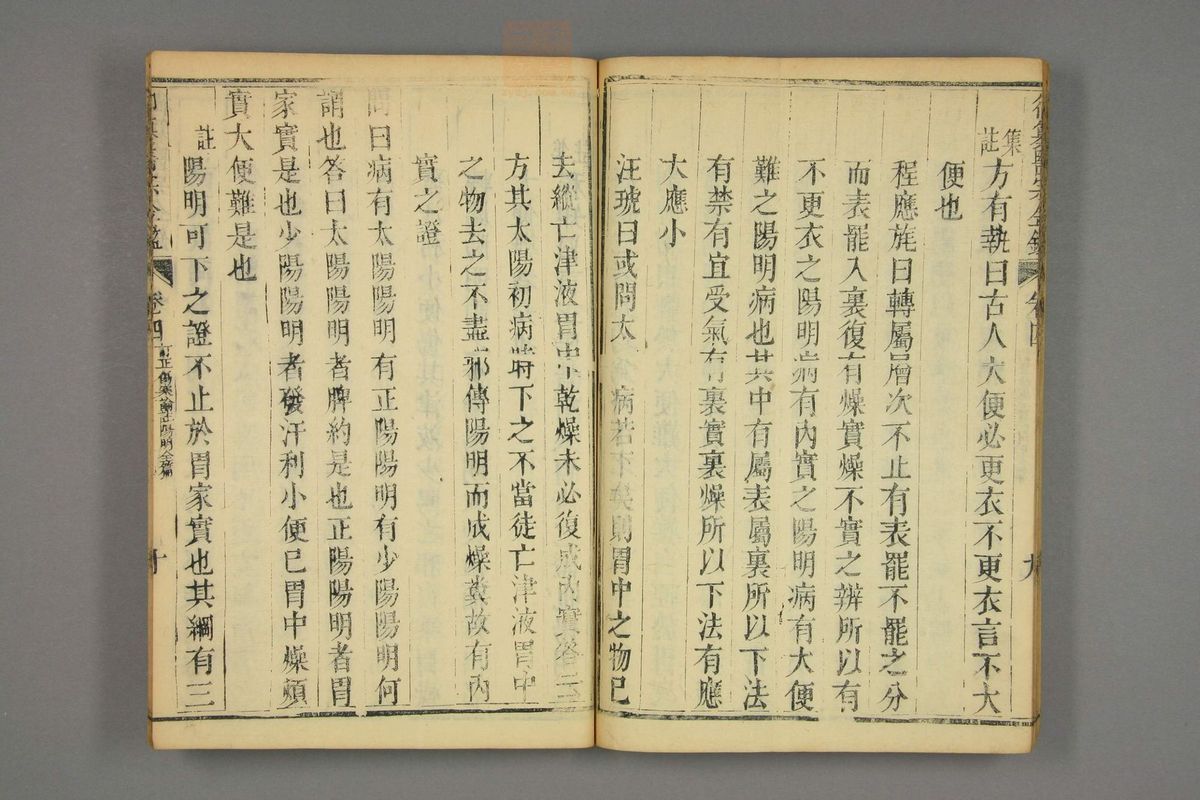 御纂醫宗金鑑 卷四 九
集註方有執曰古人大便必更衣不更衣言不大
便也
程應旄曰轉屬層次不止有表罷不罷之分
而表罷入裏復有燥實燥不實之辨所以有
不更衣之陽明病有內實之陽明病有大便
難之陽明病也其中有屬表屬裏所以下法
有禁有宜受氣有裏實裏燥所以下法有應
大應小
汪琥曰或問太陽病若不 則胃中之物已
去縱亡津液胃中乾燥未必復成內實答云
方其太陽初病時下之不當徒亡津液胃中
之物去之不盡邪傳陽明而成燥糞故有內
實之證
問曰病有太陽陽明有正陽陽明有少陽陽明何
謂也答曰太陽陽明者脾約是也正陽陽明者胃
家實是也少陽陽明者發汗利小便已胃中燥煩
實大便難是也
註陽明可下之證不止於胃家實也其綱有三
御纂醫宗金鑑 卷四 訂正傷寒論註陽明全篇 十